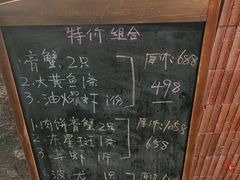 特价组合
1.膏蟹.2只
2.大黄鱼1条
3.油爆虾1份
原价:688
498
1.肉饼膏蟹2只
2.东星斑1条
3.羊虾1斤
原价:1058
658
1.波龙1